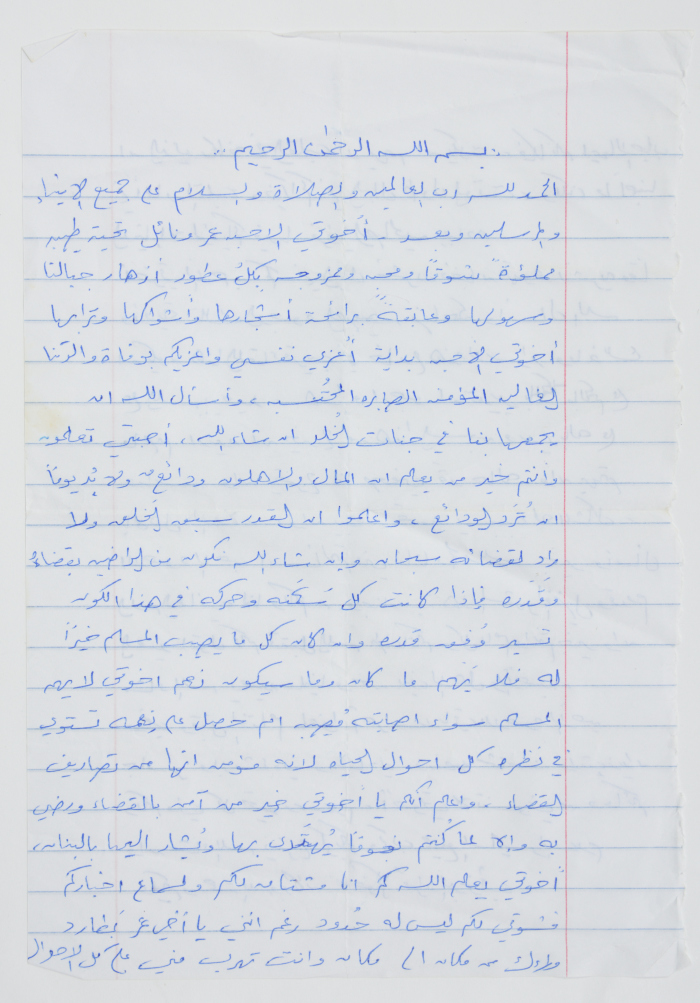 .بسم الله الرحمن الرحيم ..
الحمد لله رب العالمين والصلاة والسلام على جميع الانبياء
والمرسلين وبعد . أخوتي الاحبه عمر ونائل تحية طيبه
مملؤةً شوقًا ومحبه وممزوجه بكل عطور أزهار جبالنا
وسهولها وعابقةً برائحة أشجارها وأشواكها وترابها
أخوتي الاحبه بداية أُعزي نفسي واعزيكم بوفاة والدتنا
الغاليه المؤمنه الصابره المحتُسبه ، وأسأل الله ان
يجمعها بنا في جنات الخُلد ان شاء الله ، أحبتي تعلمون
وأنتم خير من يعلم ان المال والاهلون ودائع ولا بُد يومًا
ان تُرَد الودائع ، واعلموا ان القدر سبق الخلق ولا
راد لقضائه سبحانه وإن شاء الله نكون من الراضين بقضاءه
وقَدَره فإذا كانت كل سَكَنه وحركه في هذا الكون
تسير وُفق قدره وان كان كل ما يصيب المسلم خيرًا
له فلا يَهم ما كان وما سيكون نعم اخوتي لا يهم
المسلم سواء اصابته مُصيبه ام حصل على نِعمه تستوي
في نظره كل احوال الحياه لانه مؤمن انها من تصاريف
القضاء ، واعلم أنكم يا أخوتي خير من آمن بالقضاء ورضي
به وإلا لما كنتم نجومًا يُهتَدى بها ويُشار اليها بالبنان ،
أخوتي يعلم الله كم انا مشتاق لكم ولسماع اخباركم
فشوقي لكم ليس له حُدود رغم انني يا أخي عمر
من مكان الى مكان وانت تهرب مني على كل الاحوال